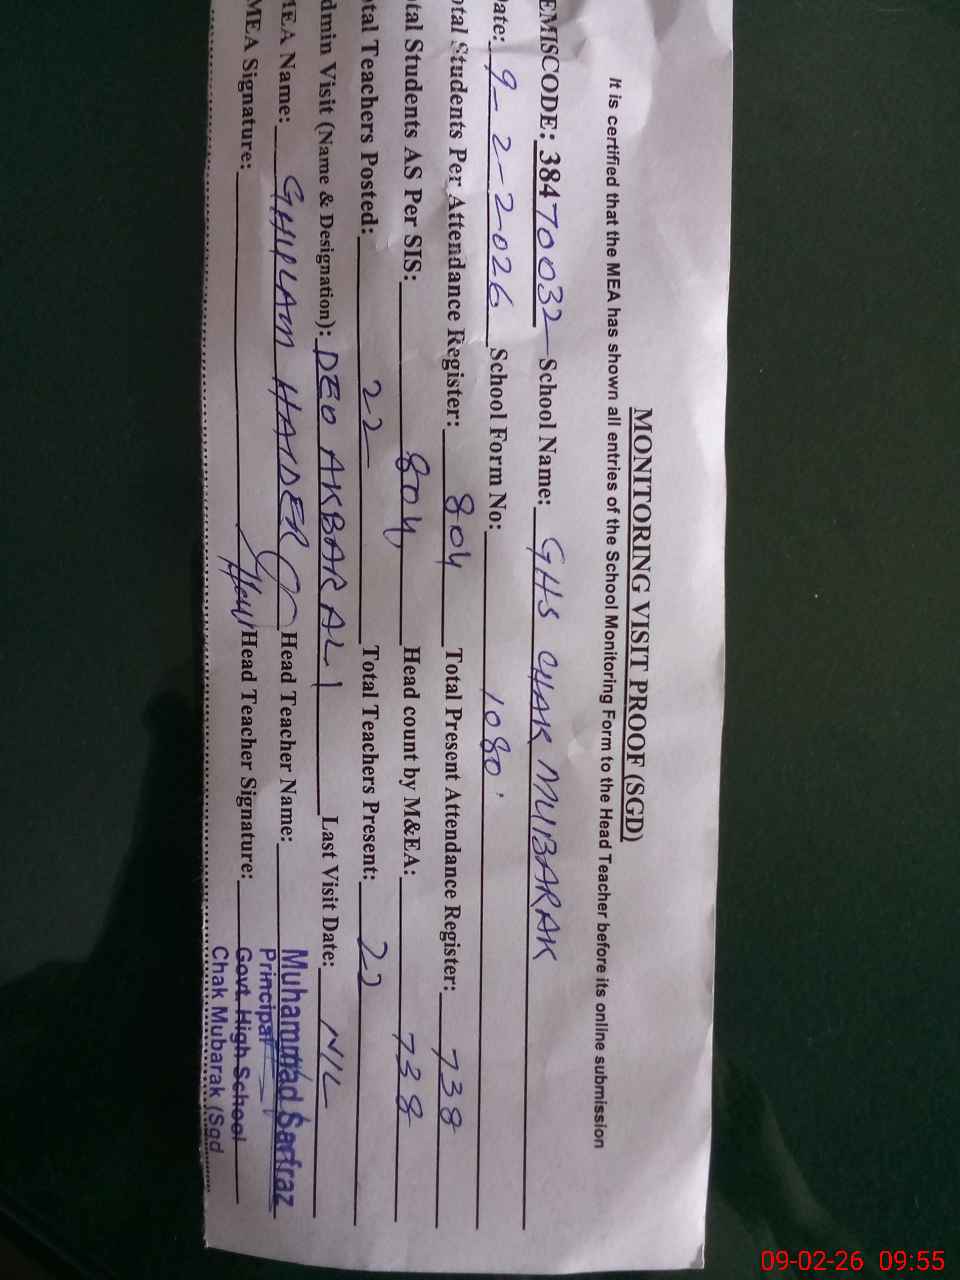 MONITORING VISIT PROOF (SGD)
It is certified that the MEA has shown all entries of the School Monitoring Form to the Head Teacher before its online submission
EMISCODE: 38470032 School Name: GHS CHAK MUBARAK
Date: 9-2-2026 School Form No: 1080
otal Students Per Attendance Register: 804 Total Present Attendance Register: 738
otal Students AS Per SIS: 804 Head count by M&EA: 738
otal Teachers Posted: 22 Total Teachers Present: 22
dmin Visit (Name & Designation): DEO AKBAR ALI Last Visit Date: NIL
MEA Name: GHULAM HAIDER Head Teacher Name: Muhammad Sarfraz
Principal
MEA Signature: Head Teacher Signature: Govt. High School
Chak Mubarak (Sgd
09-02-26 09:55